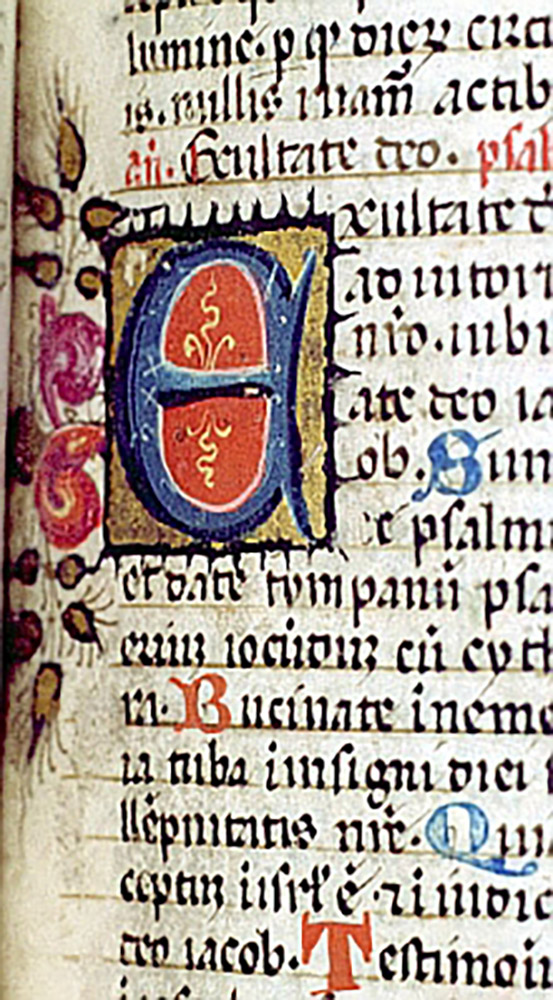 lumine. p qͥ dieꝝ circ
is. nullis illam̄ actib
añ. Exultate deo. psal
Exultate d
adiutori
nr̄o. iubi
late deo ia
cob. Sum
ite psalm
et date tympanū psa
eriuꝫ iocūduꝫ cū cyth
ra. Bucinate ineme
ia tuba insigni diei s
llēpnitatis nr̄e. Qui
ceptuꝫ iisrl̄ ē ⁊ iudic
deo iacob. Testimoni